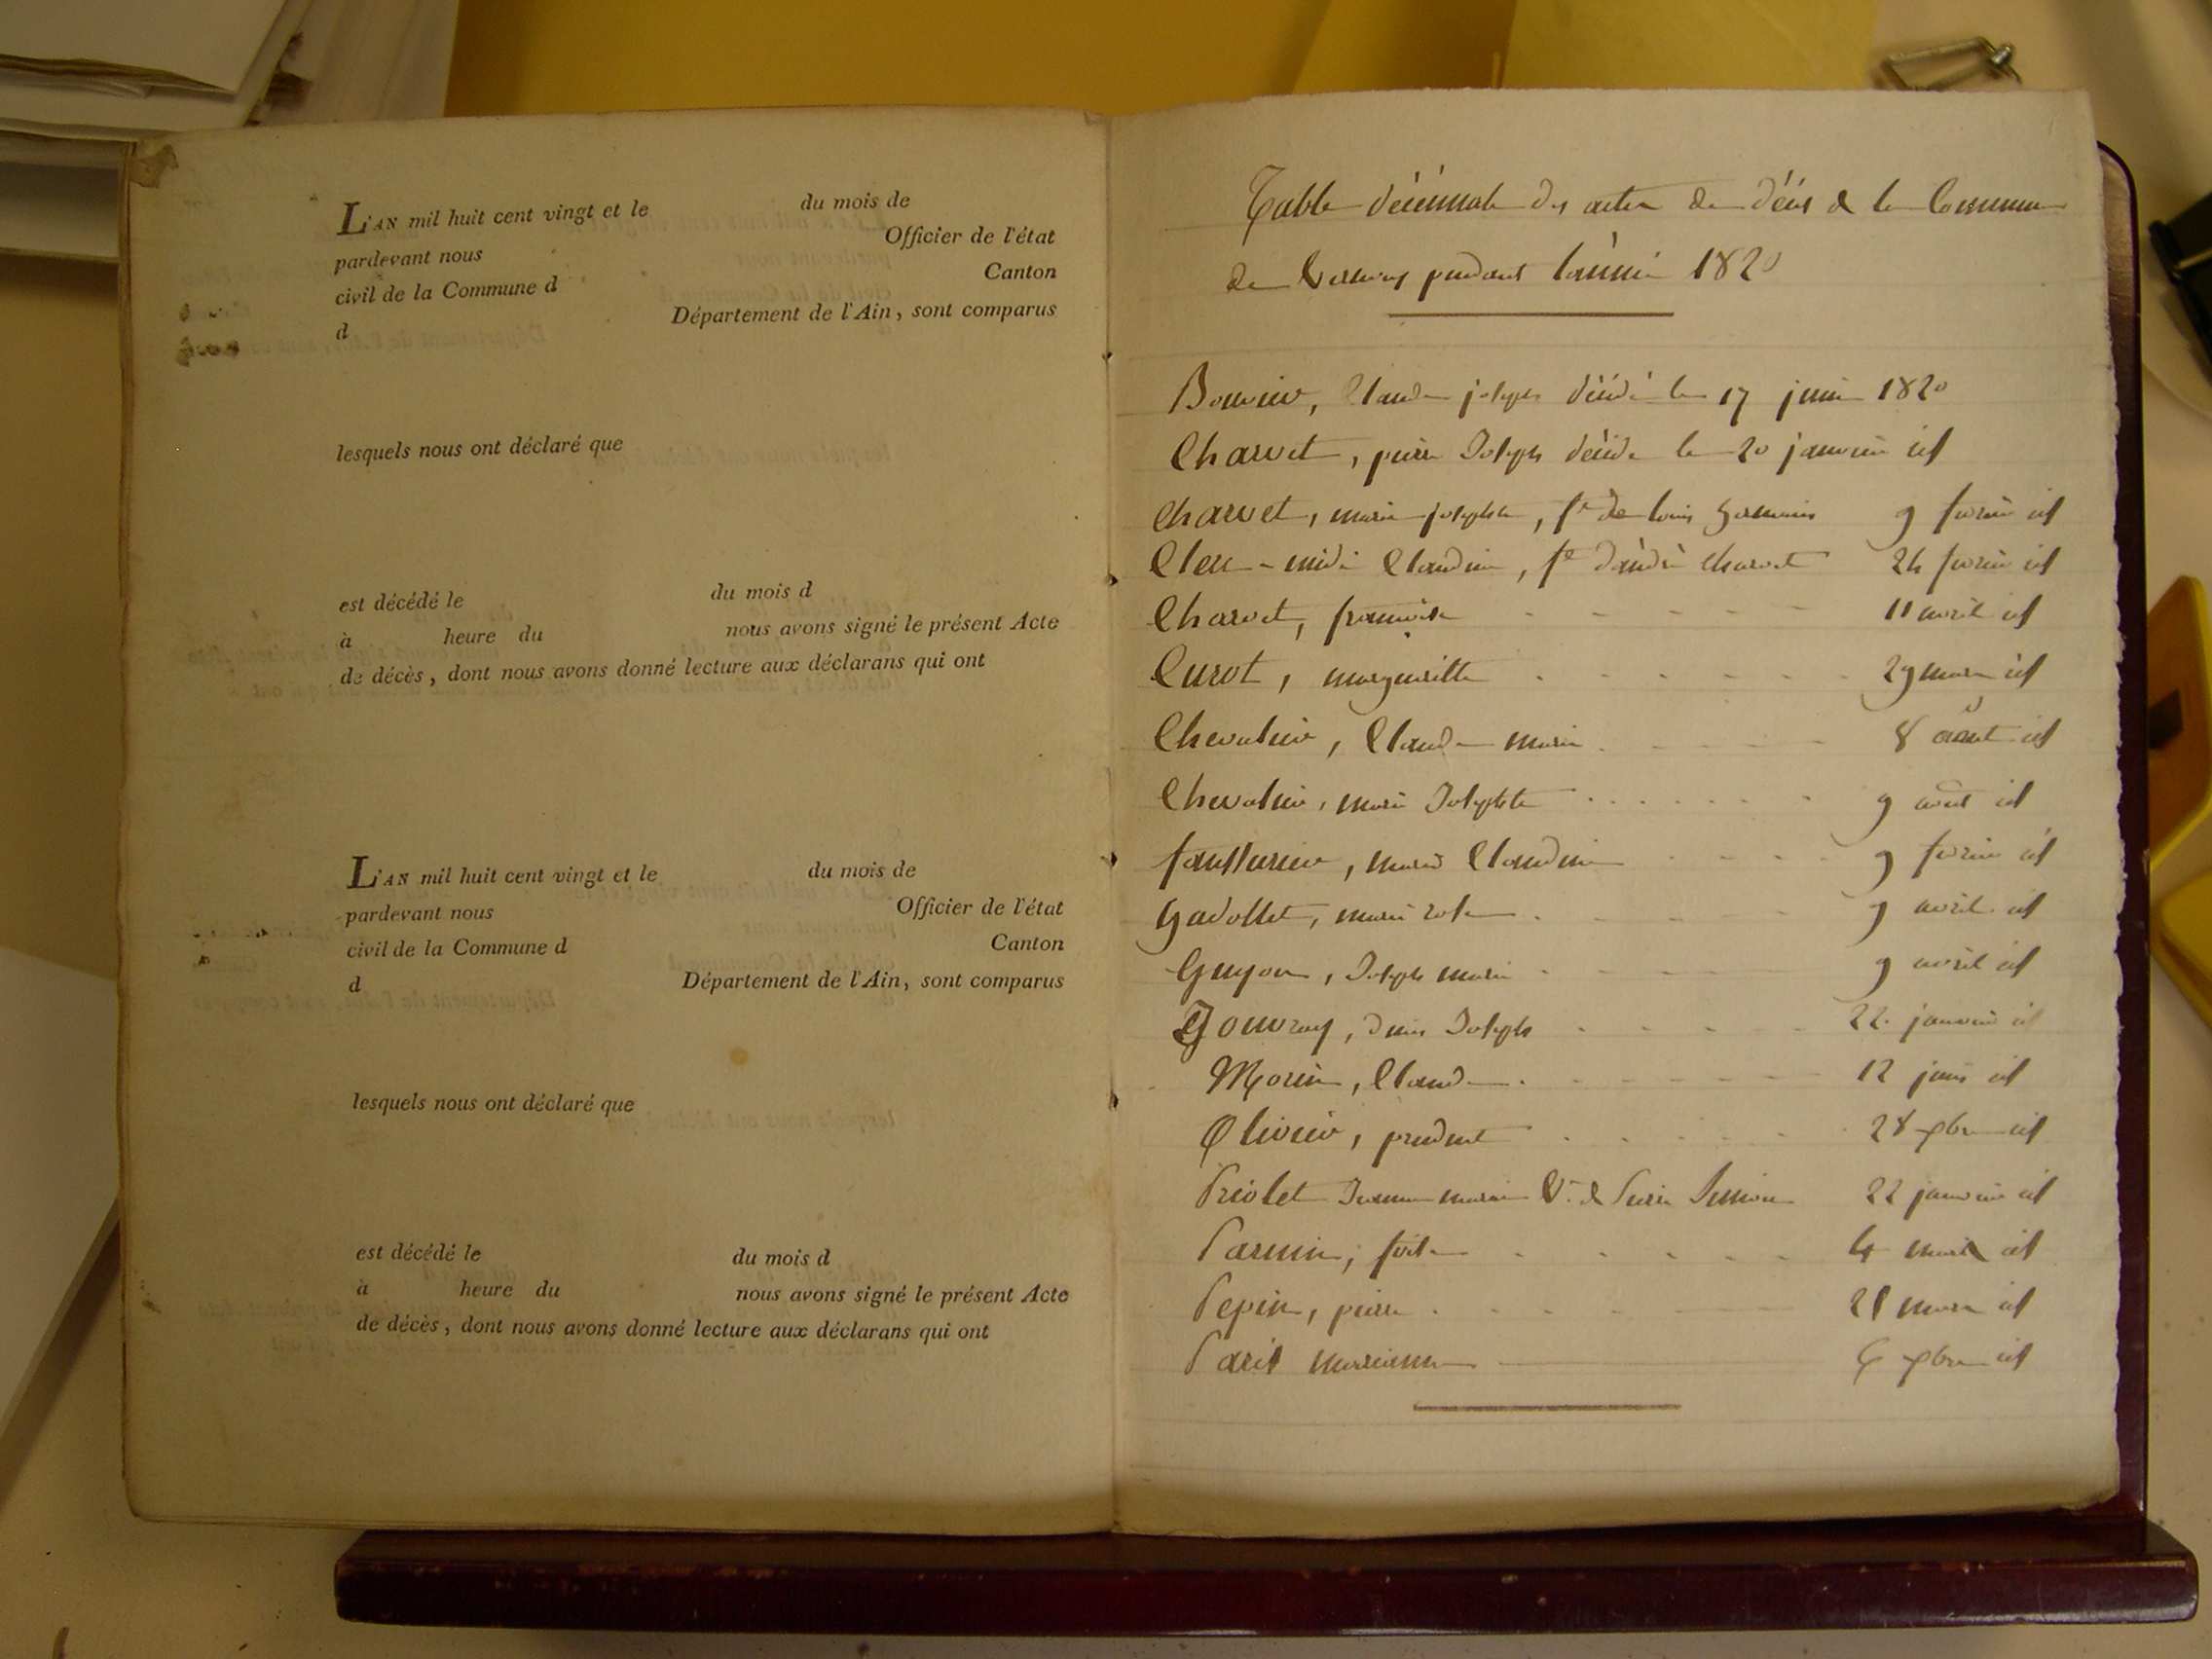 L'AN mil huit cent vingt et le du mois de
pardevant nous Officier de l'état
civil de la Commune d Canton
d Département de l'Ain, sont comparus
lesquels nous ont déclaré que
est décédé le du mois d
à heure du nous avons signé le présent Acte
de décès, dont nous avons donné lecture aux déclarans qui ont
L'AN mil huit cent vingt et le du mois de
pardevant nous Officier de l'état
civil de la Commune d Canton
d Département de l'Ain, sont comparus
lesquels nous ont déclaré que
est décédé le du mois d
à heure du nous avons signé le présent Acte
de décès, dont nous avons donné lecture aux déclarans qui ont
Table décennale des actes de décès de la Commune
de pendant l'année 1820
Bouvier, Claude joseph décédé le 17 juin 1820
Charvet, pierre Joseph décédé le 20 janvier id
Charvet, marie josephte, fe de louis 9 février id
Claudine, fe d'andré charvet 24 février id
Charvet, françoise 11 avril id
Curot, margueritte 29 mars id
Chevalier, Claude marie 8 août id
Chevalier, marie Josephte 9 août id
marie Claudine 9 février id
Gavollet, marie rose 9 avril id
Guyon, Joseph marie 9 avril id
Gouvray, denis Joseph 22 janvier id
Morin, Claude 12 juin id
Olivier, prudent 28 id
Priolet Jeanne marie Ve de Pierre 22 janvier id
4 mars id
Pepin, pierre 21 mars id
Parit marianne id